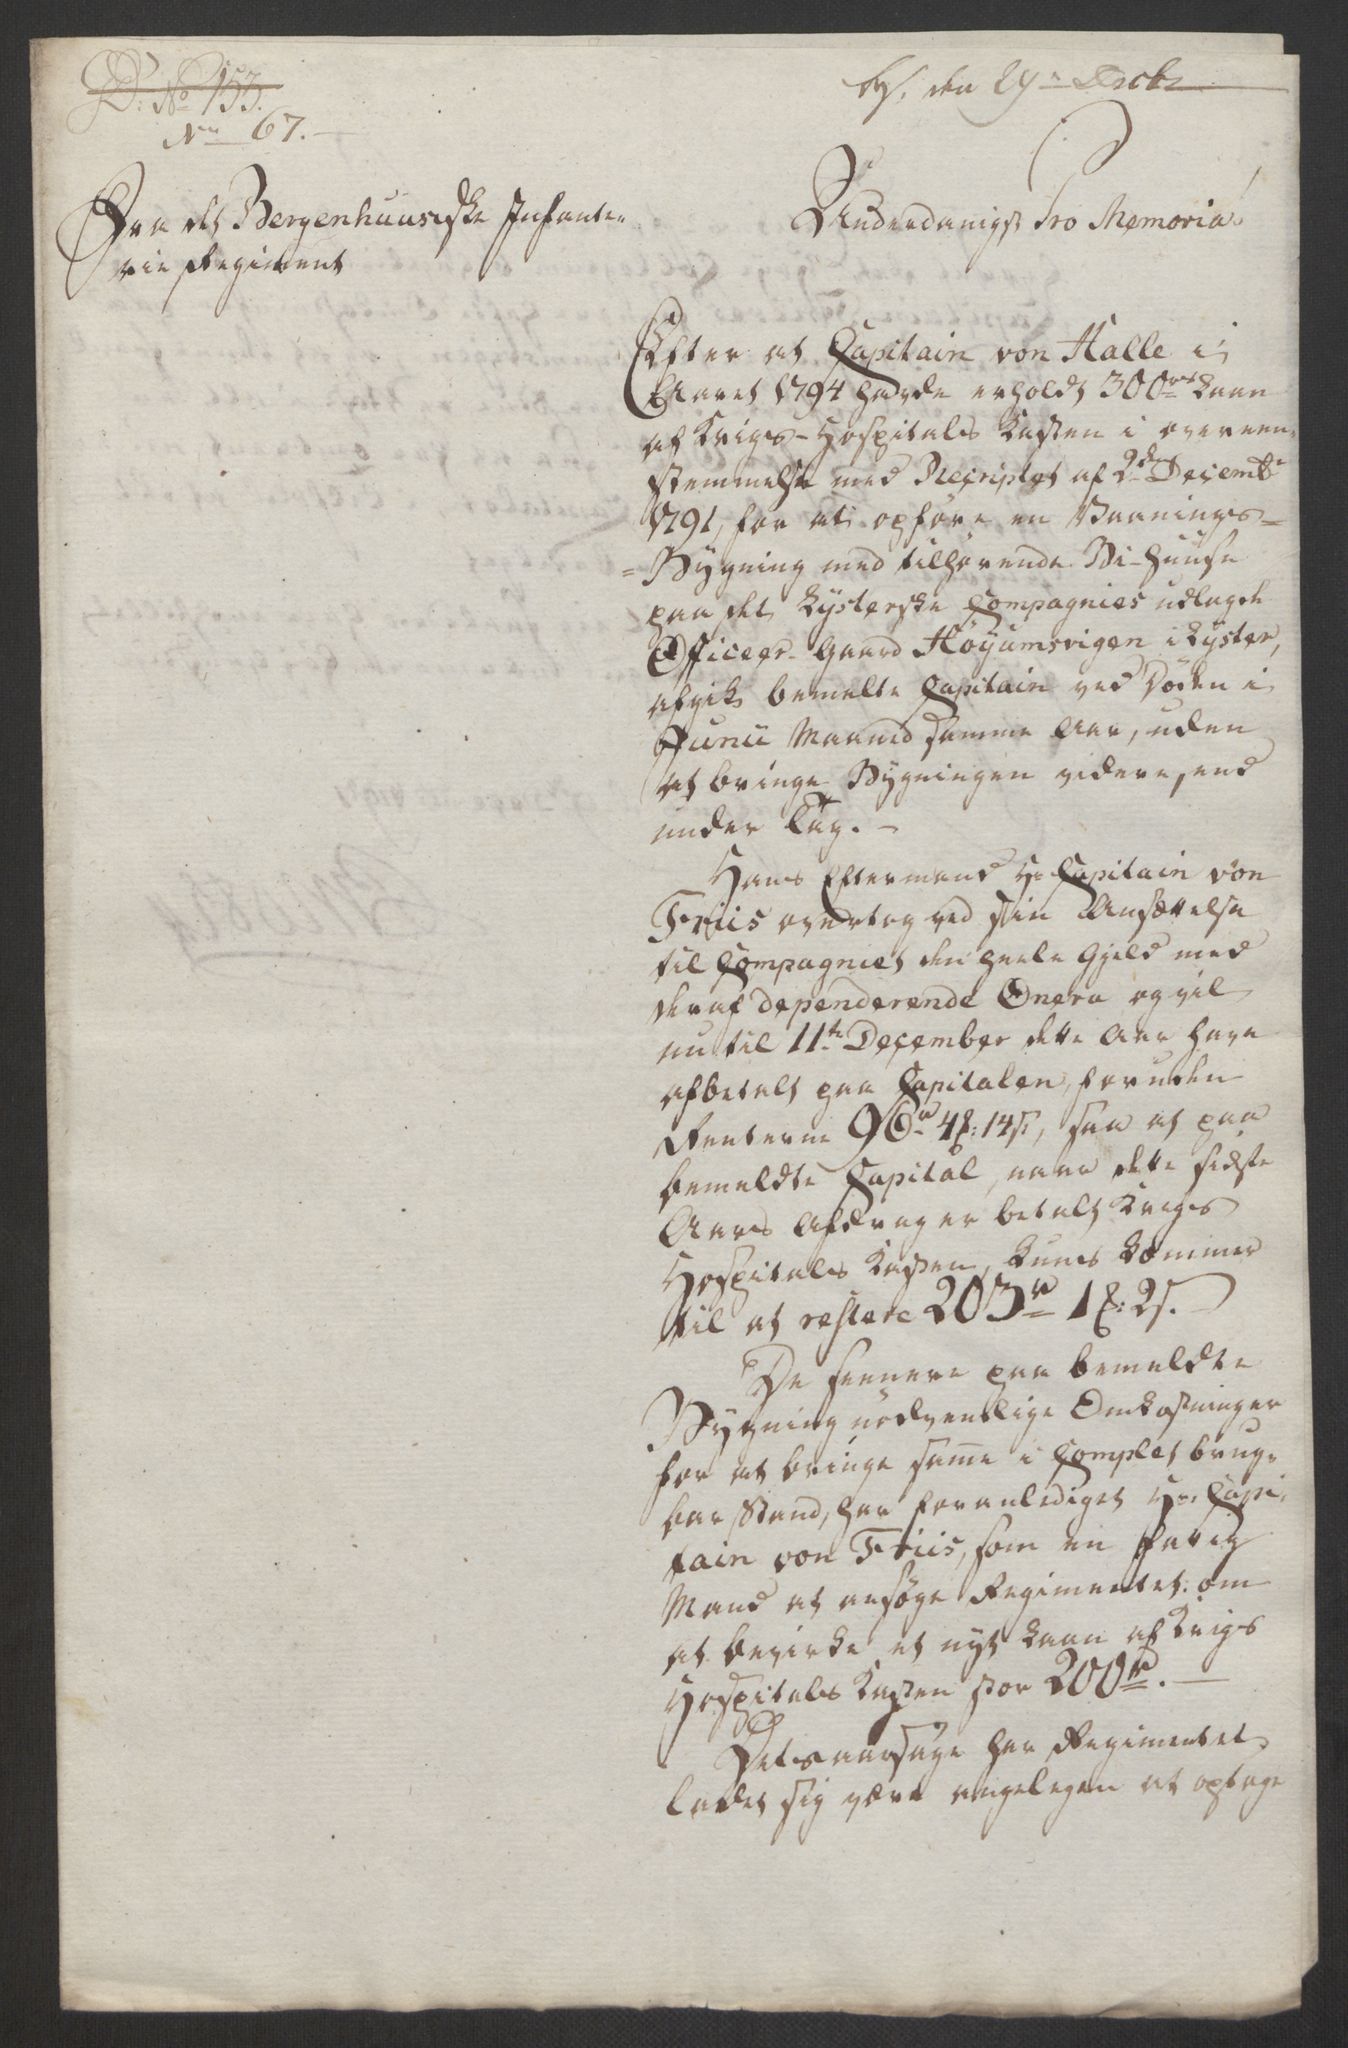 D: No 153.
No 67.
den 29de Decbr
Fra det Bergenhuusiske Infante-
rie Regiment
Underdanigst Pro Memoria
Efter at Capitain von Halle i
Aaret 1794 havde erholdt 300rd Laan
af Krigs-Hospitals Kassen i overeen-
stemmelse med Rescriptet af 2den Decembr
1791, for at opföre en Vaanings-
-Bygning med tilhörende Bi-Huuse
paa det Lysterske Compagnies udlagde
Officeer-Gaard Höyumsvigen i Lyster,
afgik bemelte Capitain ved Döden i
Junii Maaned samme Aar, uden
at bringe Bygningen videre, end
under Tag.-
Hans Eftermand Hr Capitain von
Friis overtog ved sin Ansættelse
til Compagniet den heele Gjeld med
deraf dependerende Onera og vil
nu til 11te December dette Aar have
afbetalt paa Capitalen, foruden
Renterne 96rd 4ß: 14s, saa at paa
bemeldte Capital, naar dette sidste
Aars Afdrag er betalt Krigs
Hospitals Kassen, kuns kommer
til at restere 203rd 1ß: 2s.
De seenere paa bemeldte
Bygning nödvendige Omkostninger
for at bringe samme i Complet brug-
bar Stand, har foranlediget Hr. Capi-
tain von Friis, som en
Mand at ansöge Regimentet om
at bevirke et nyt Laan af Krigs
Hospitals Kassen stor 200rd.-
Det aarsage har Regimentet
ladet sig være angelegen at optage